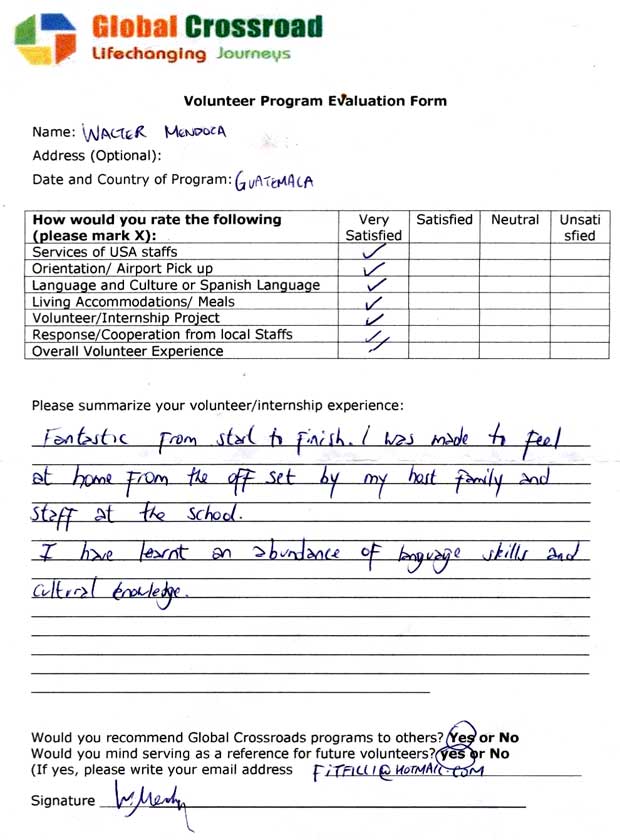 Global Crossroad
Lifechanging Journeys
Volunteer Program Evaluation Form
Name: WALTER MENDOCA
Address (Optional):
Date and Country of Program: GUATEMALA
How would you rate the following (please mark X): Very Satisfied Satisfied Neutral Unsatisfied
Services of USA staffs ✓
Orientation/ Airport Pick up ✓
Language and Culture or Spanish Language ✓
Living Accommodations/ Meals ✓
Volunteer/Internship Project ✓
Response/Cooperation from local Staffs ✓
Overall Volunteer Experience ✓
Please summarize your volunteer/internship experience:
Fantastic from start to finish. I was made to feel
at home from the off set by my host family and
staff at the school.
I have learnt an abundance of language skills and
cultural knowledge.
Would you recommend Global Crossroads programs to others? Yes or No
Would you mind serving as a reference for future volunteers? yes or No
(If yes, please write your email address FITFILLI@HOTMAIL.COM
Signature W. Mendoca